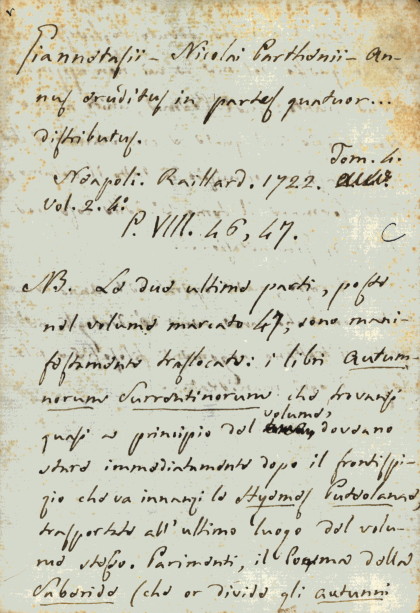 Giannetasii - Nicolai Parthenii - an-
nus eruditus in partes quatuor...
distributus.
Tom. 4.
Neapoli. Raillard. 1722.
Vol. 2. 4.°
P. VIII. 46, 47.
C
NB. Le due ultime parti, poste
nel volume marcato 47, sono mani-
festamente traslocate: i libri autum-
norum Surrentinorum che trovansi
quasi a principio del volume, doveano
stare immediatamente dopo il frontispi-
zio che va innanzi le Hyemes Puteolanae,
trasportate all'ultimo luogo del volu-
me stesso. Parimenti, il Poema della
Saberide (che or divide gli autunni